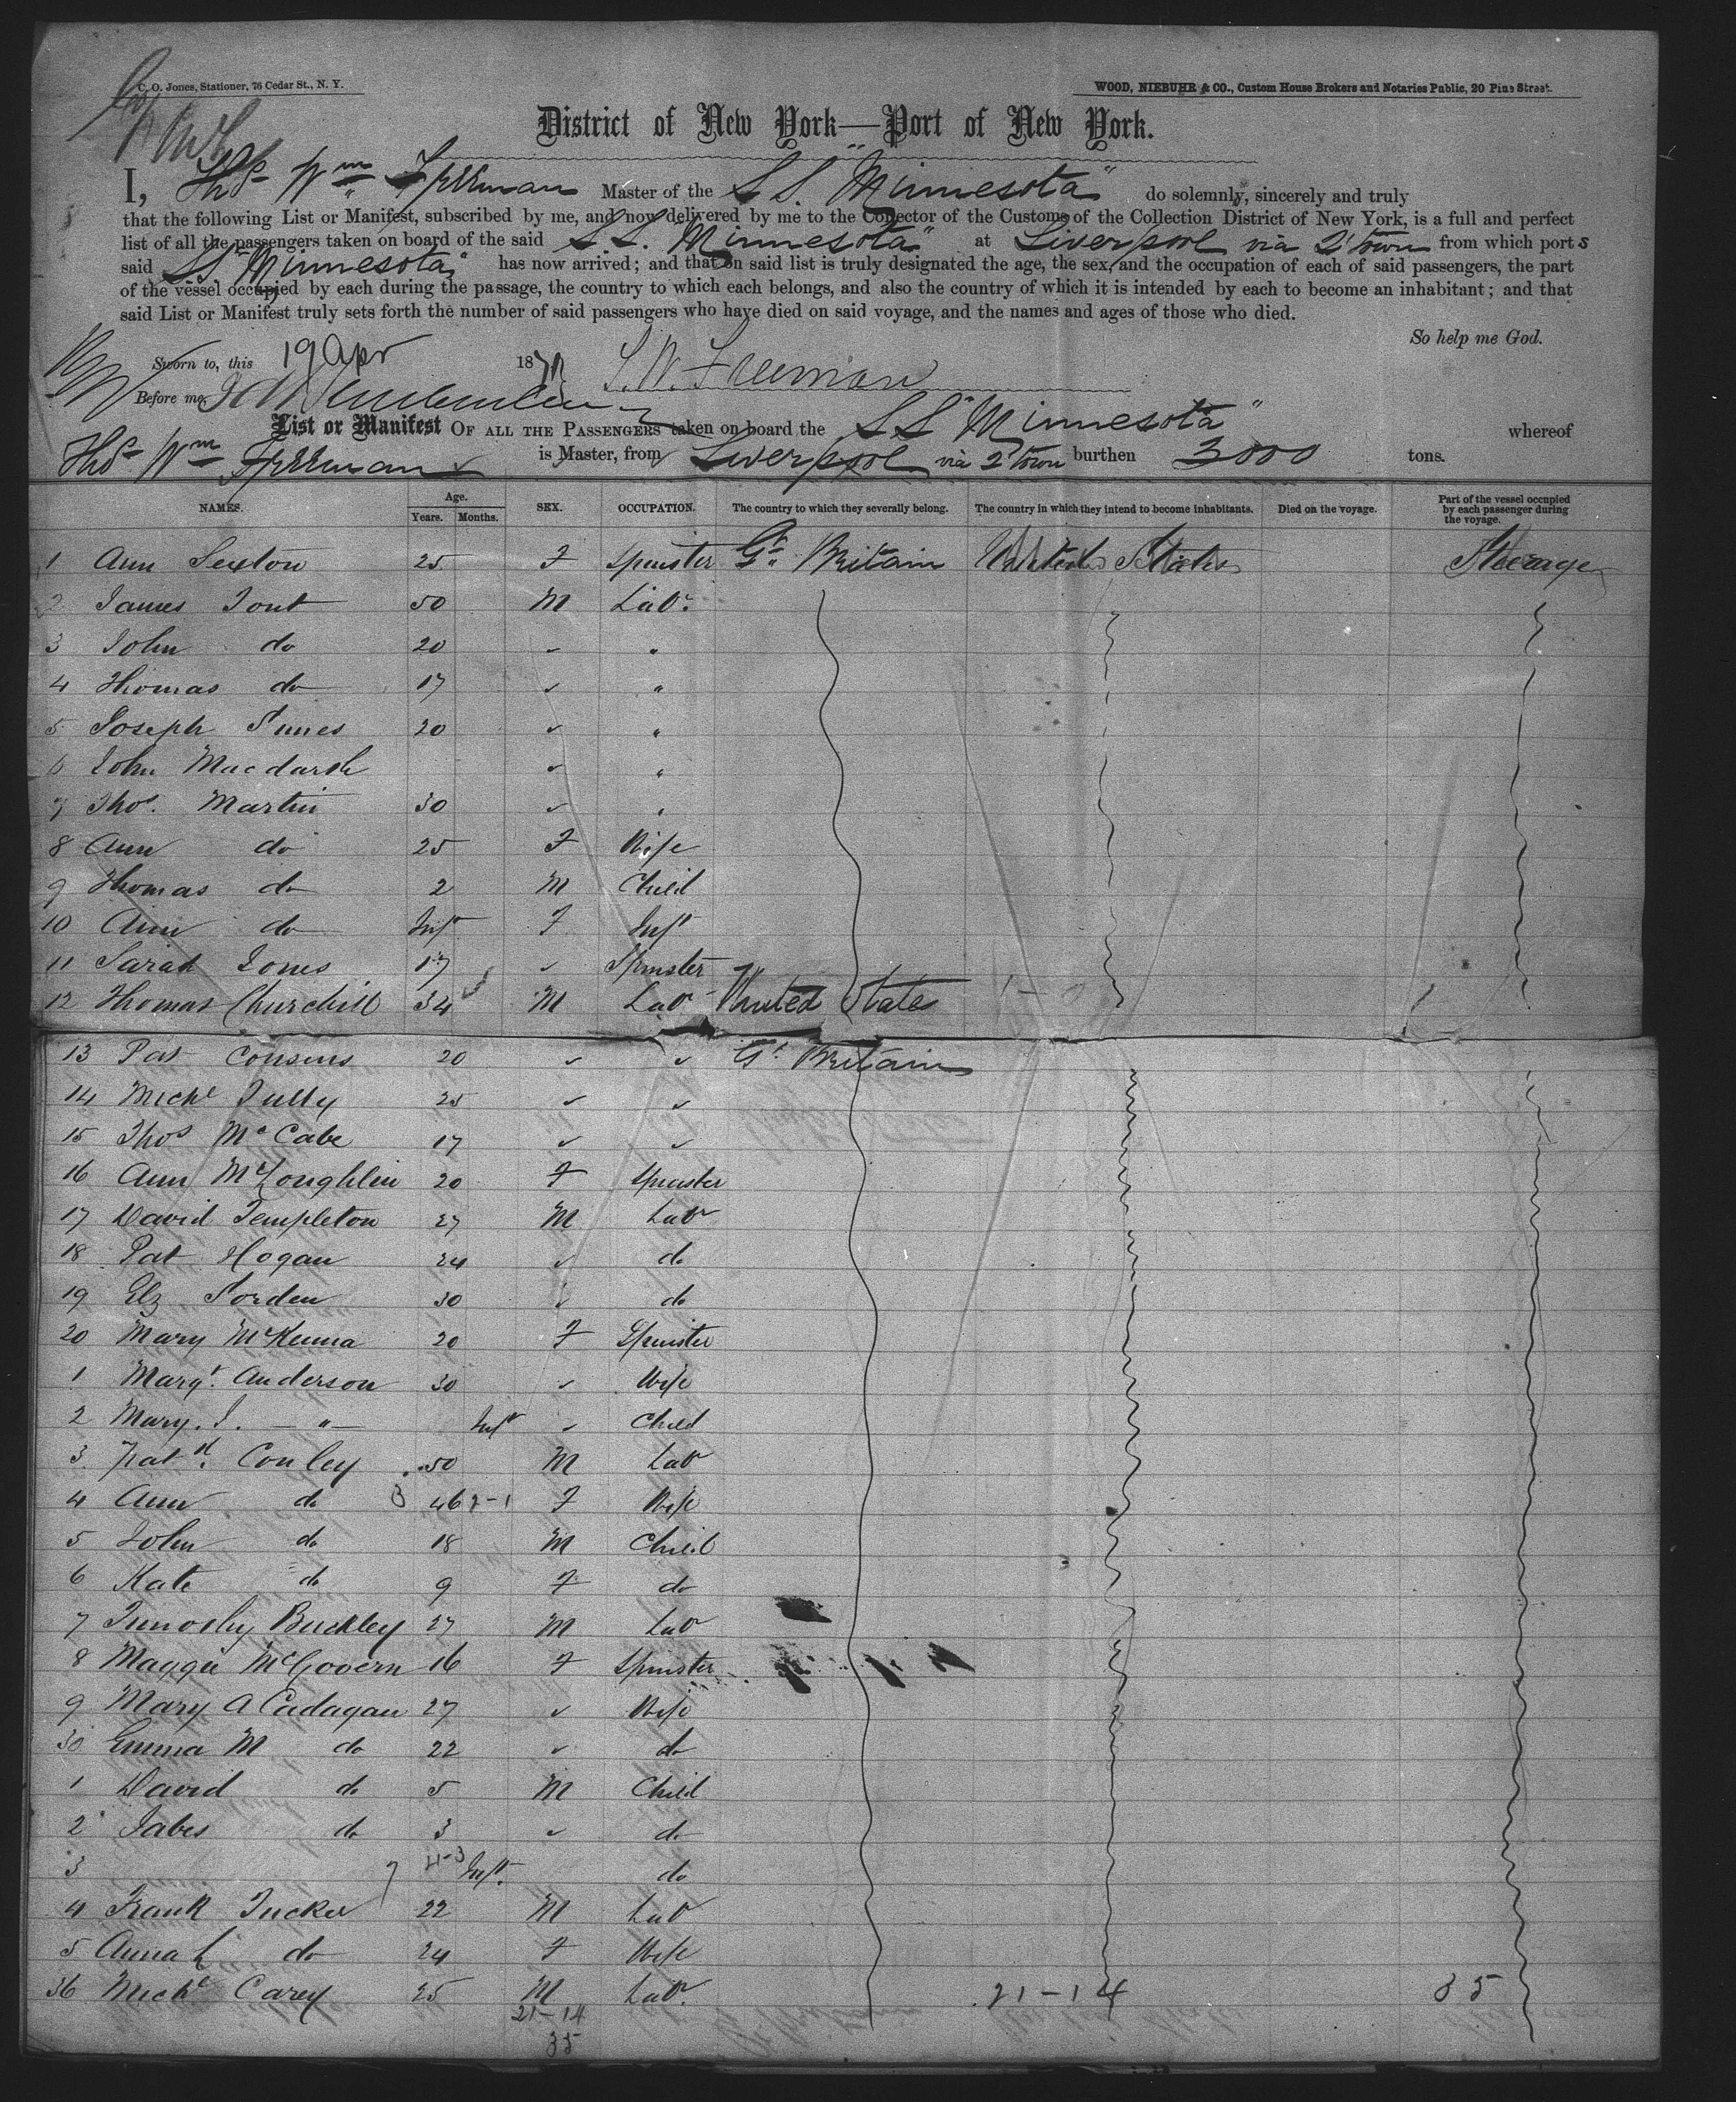 C. O. Jones, Stationer, 76 Cedar St., N. Y.
WOOD, NIEBUHR & CO., Custom House Brokers and Notaries Public, 20 Pine Street.
District of New York—Port of New York.
I, Thos Wm Freeman Master of the S.S. "Minnesota" do solemnly, sincerely and truly
that the following List or Manifest, subscribed by me, and now delivered by me to the Collector of the Customs of the Collection District of New York, is a full and perfect
list of all the passengers taken on board of the said S.S. "Minnesota" at Liverpool via Q'town from which ports
said S.S. "Minnesota" has now arrived; and that on said list is truly designated the age, the sex, and the occupation of each of said passengers, the part
of the vessel occupied by each during the passage, the country to which each belongs, and also the country of which it is intended by each to become an inhabitant; and that
said List or Manifest truly sets forth the number of said passengers who have died on said voyage, and the names and ages of those who died.
So help me God.
Sworn to, this 19 Apr 187 T. W. Freeman
Before me,
List or Manifest OF ALL THE PASSENGERS taken on board the S.S. "Minnesota" whereof
Thos Wm Freeman is Master, from Liverpool via Q'town burthen 3000 tons.
NAMES. Age. Years. Months. SEX. OCCUPATION. The country to which they severally belong. The country in which they intend to become inhabitants. Died on the voyage. Part of the vessel occupied by each passenger during the voyage.
1 Ann Sexton 25 F Spinster Gt. Britain United States Steerage
2 James Tout 50 M Labr
3 John do 20 " "
4 Thomas do 17 " "
5 Joseph 20 " "
6 John " "
7 Thos. Martin 30 " "
8 Ann do 25 F Wife
9 Thomas do 2 M Child
10 Ann do Inft F Inft
11 Sarah Jones 17 " Spinster
12 Thomas Churchill 34 M Labr United States
13 Pat Cousins 20 " " Gt. Britain
14 Michl Tully 25 " "
15 Thos McCabe 17 " "
16 Ann McLoughlin 20 F Spinster
17 David Templeton 27 M Labr
18 Pat Hogan 24 " do
19 Elz 30 " do
20 Mary McKenna 20 F Spinster
1 Margt. Anderson 30 " Wife
2 Mary. J. — " — Inft " Child
3 Patk. Conley 50 M Labr
4 Ann do 3 46 2-1 F Wife
5 John do 18 M Child
6 Kate do 9 F do
7 Timothy Buckley 27 M Labr
8 Maggie McGovern 16 F Spinster
9 Mary A Cadagan 27 " Wife
30 Emma M do 22 " do
1 David do 5 M Child
2 Jabes do 3 " do
3 7 4-3 Inft. do
4 Frank Tucker 22 M Labr
5 Anna L do 24 F Wife
36 Michl Carey 25 M Labr. 21-14 35
21-14
35